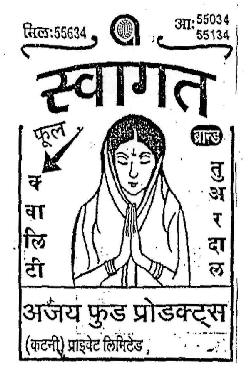 मिल:55634
आ:55034
55134
स्वागत
फूल
ब्रान्ड
क्वालिटी
तुअरदाल
अजय फुड प्रोडक्ट्स
(कटनी) प्राइवेट लिमिटेड